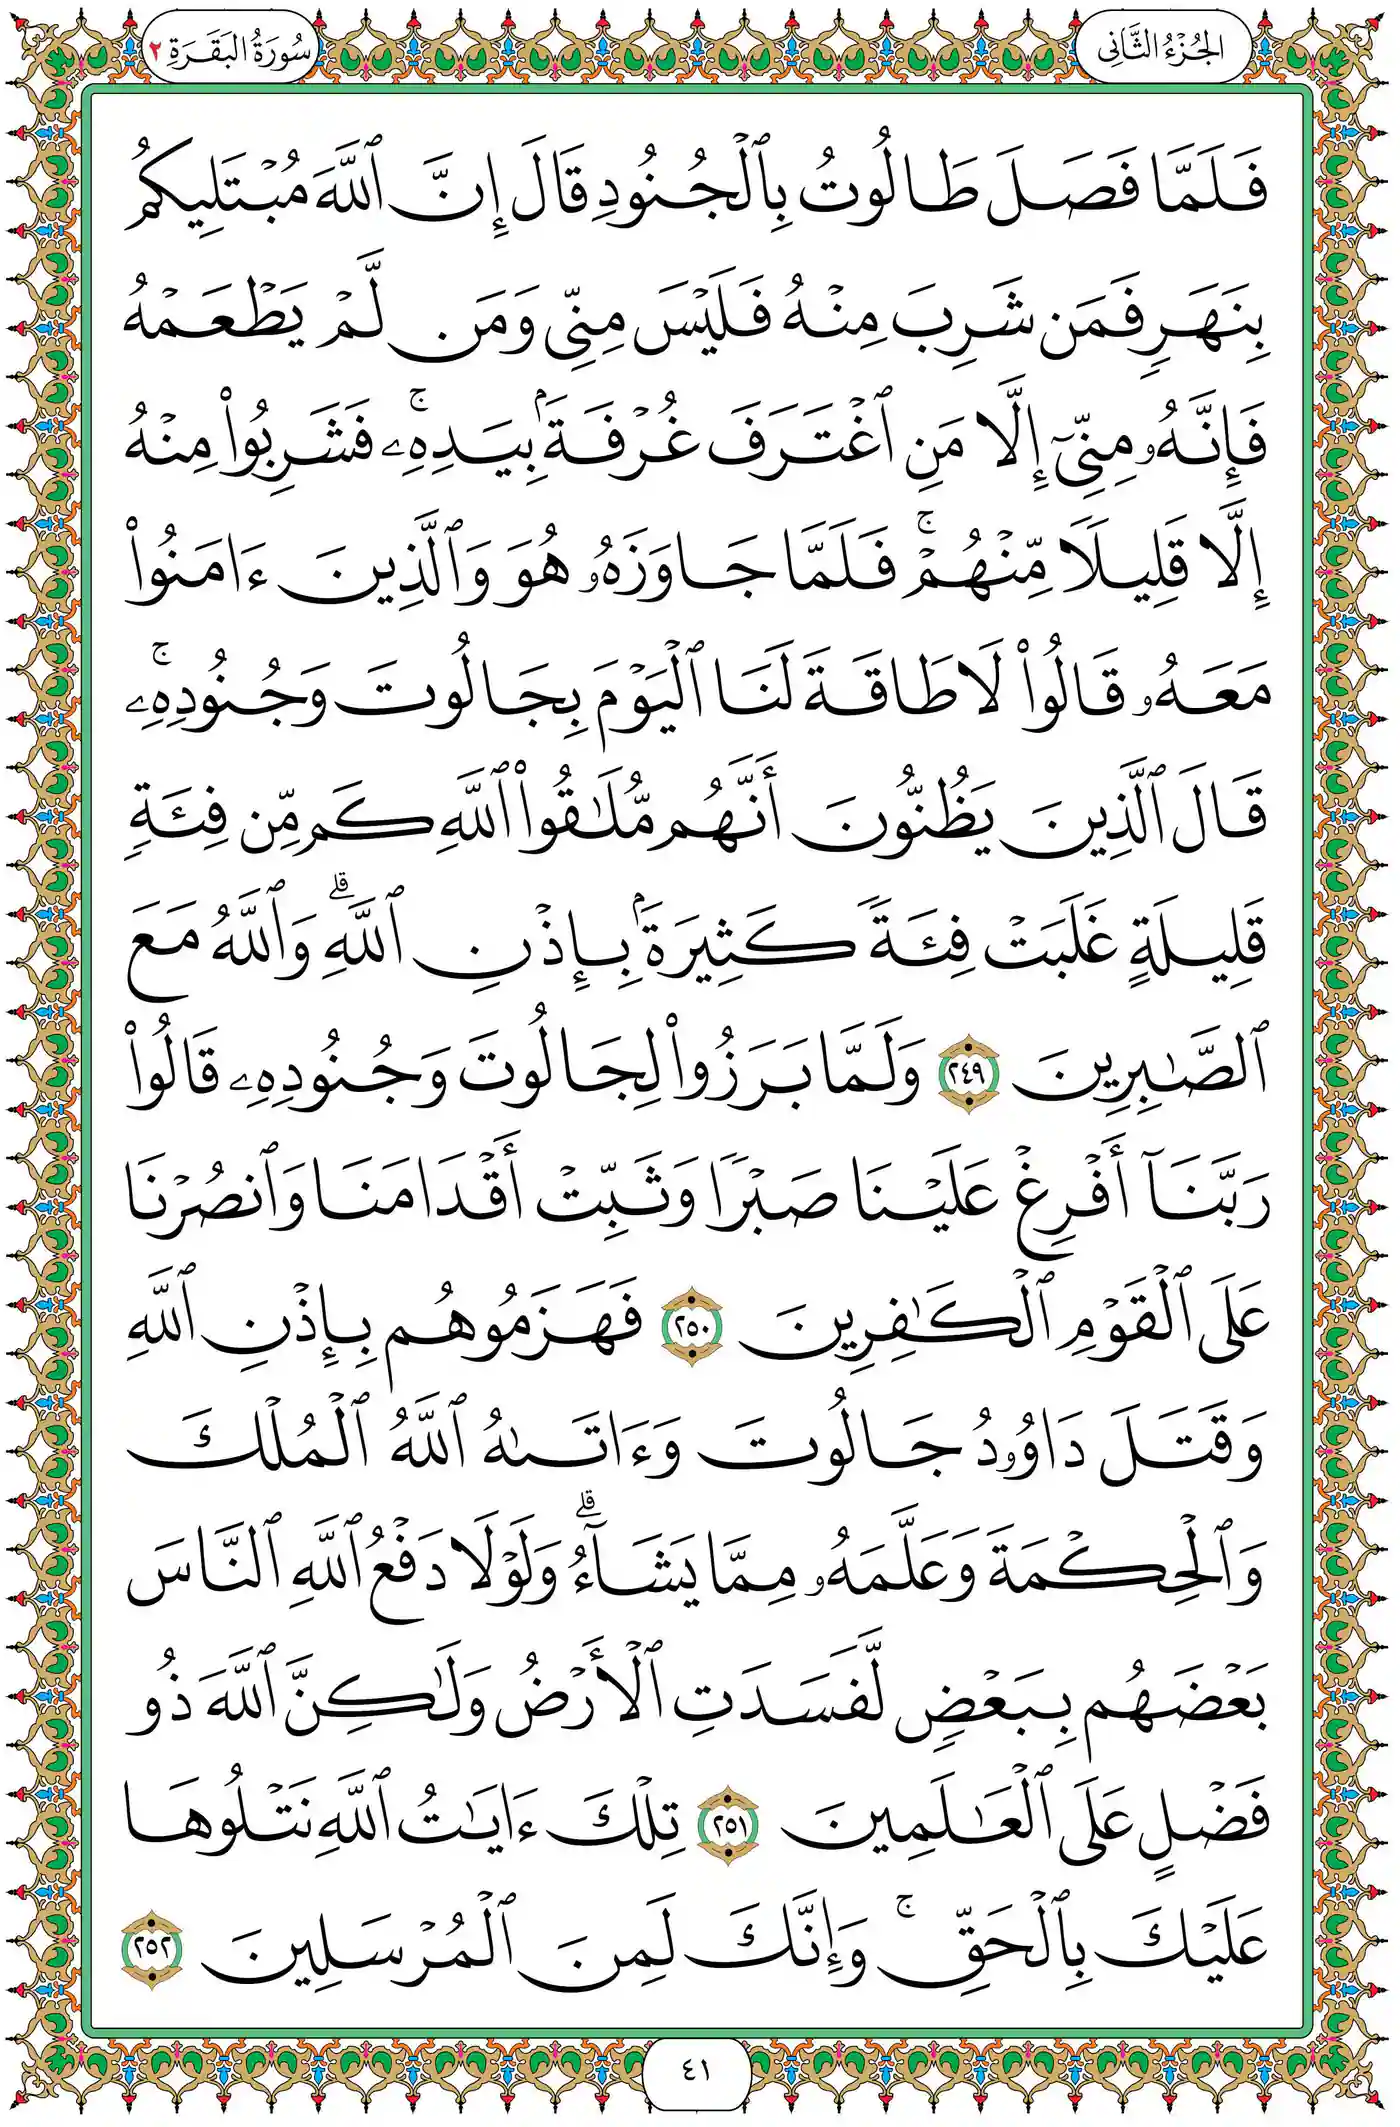 الجُزْءُ الثَّانِي
سُورَةُ البَقَرَةِ ٢
فَلَمَّا فَصَلَ طَالُوتُ بِٱلْجُنُودِ قَالَ إِنَّ ٱللَّهَ مُبْتَلِيكُم
بِنَهَرٍ فَمَن شَرِبَ مِنْهُ فَلَيْسَ مِنِّى وَمَن لَّمْ يَطْعَمْهُ
فَإِنَّهُۥ مِنِّىٓ إِلَّا مَنِ ٱغْتَرَفَ غُرْفَةًۢ بِيَدِهِۦ ۚ فَشَرِبُوا۟ مِنْهُ
إِلَّا قَلِيلًا مِّنْهُمْ ۚ فَلَمَّا جَاوَزَهُۥ هُوَ وَٱلَّذِينَ ءَامَنُوا۟
مَعَهُۥ قَالُوا۟ لَا طَاقَةَ لَنَا ٱلْيَوْمَ بِجَالُوتَ وَجُنُودِهِۦ ۚ
قَالَ ٱلَّذِينَ يَظُنُّونَ أَنَّهُم مُّلَٰقُوا۟ ٱللَّهِ كَم مِّن فِئَةٍ
قَلِيلَةٍ غَلَبَتْ فِئَةً كَثِيرَةًۢ بِإِذْنِ ٱللَّهِ ۗ وَٱللَّهُ مَعَ
ٱلصَّٰبِرِينَ ٢٤٩ وَلَمَّا بَرَزُوا۟ لِجَالُوتَ وَجُنُودِهِۦ قَالُوا۟
رَبَّنَآ أَفْرِغْ عَلَيْنَا صَبْرًا وَثَبِّتْ أَقْدَامَنَا وَٱنصُرْنَا
عَلَى ٱلْقَوْمِ ٱلْكَٰفِرِينَ ٢٥٠ فَهَزَمُوهُم بِإِذْنِ ٱللَّهِ
وَقَتَلَ دَاوُۥدُ جَالُوتَ وَءَاتَىٰهُ ٱللَّهُ ٱلْمُلْكَ
وَٱلْحِكْمَةَ وَعَلَّمَهُۥ مِمَّا يَشَآءُ ۗ وَلَوْلَا دَفْعُ ٱللَّهِ ٱلنَّاسَ
بَعْضَهُم بِبَعْضٍ لَّفَسَدَتِ ٱلْأَرْضُ وَلَٰكِنَّ ٱللَّهَ ذُو
فَضْلٍ عَلَى ٱلْعَٰلَمِينَ ٢٥١ تِلْكَ ءَايَٰتُ ٱللَّهِ نَتْلُوهَا
عَلَيْكَ بِٱلْحَقِّ ۚ وَإِنَّكَ لَمِنَ ٱلْمُرْسَلِينَ ٢٥٢
٤١